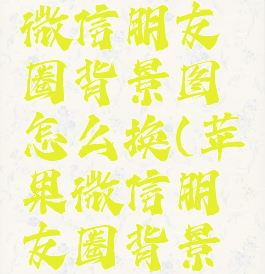 微信朋友
圈背景图
怎么换(苹
果微信朋
友圈背景